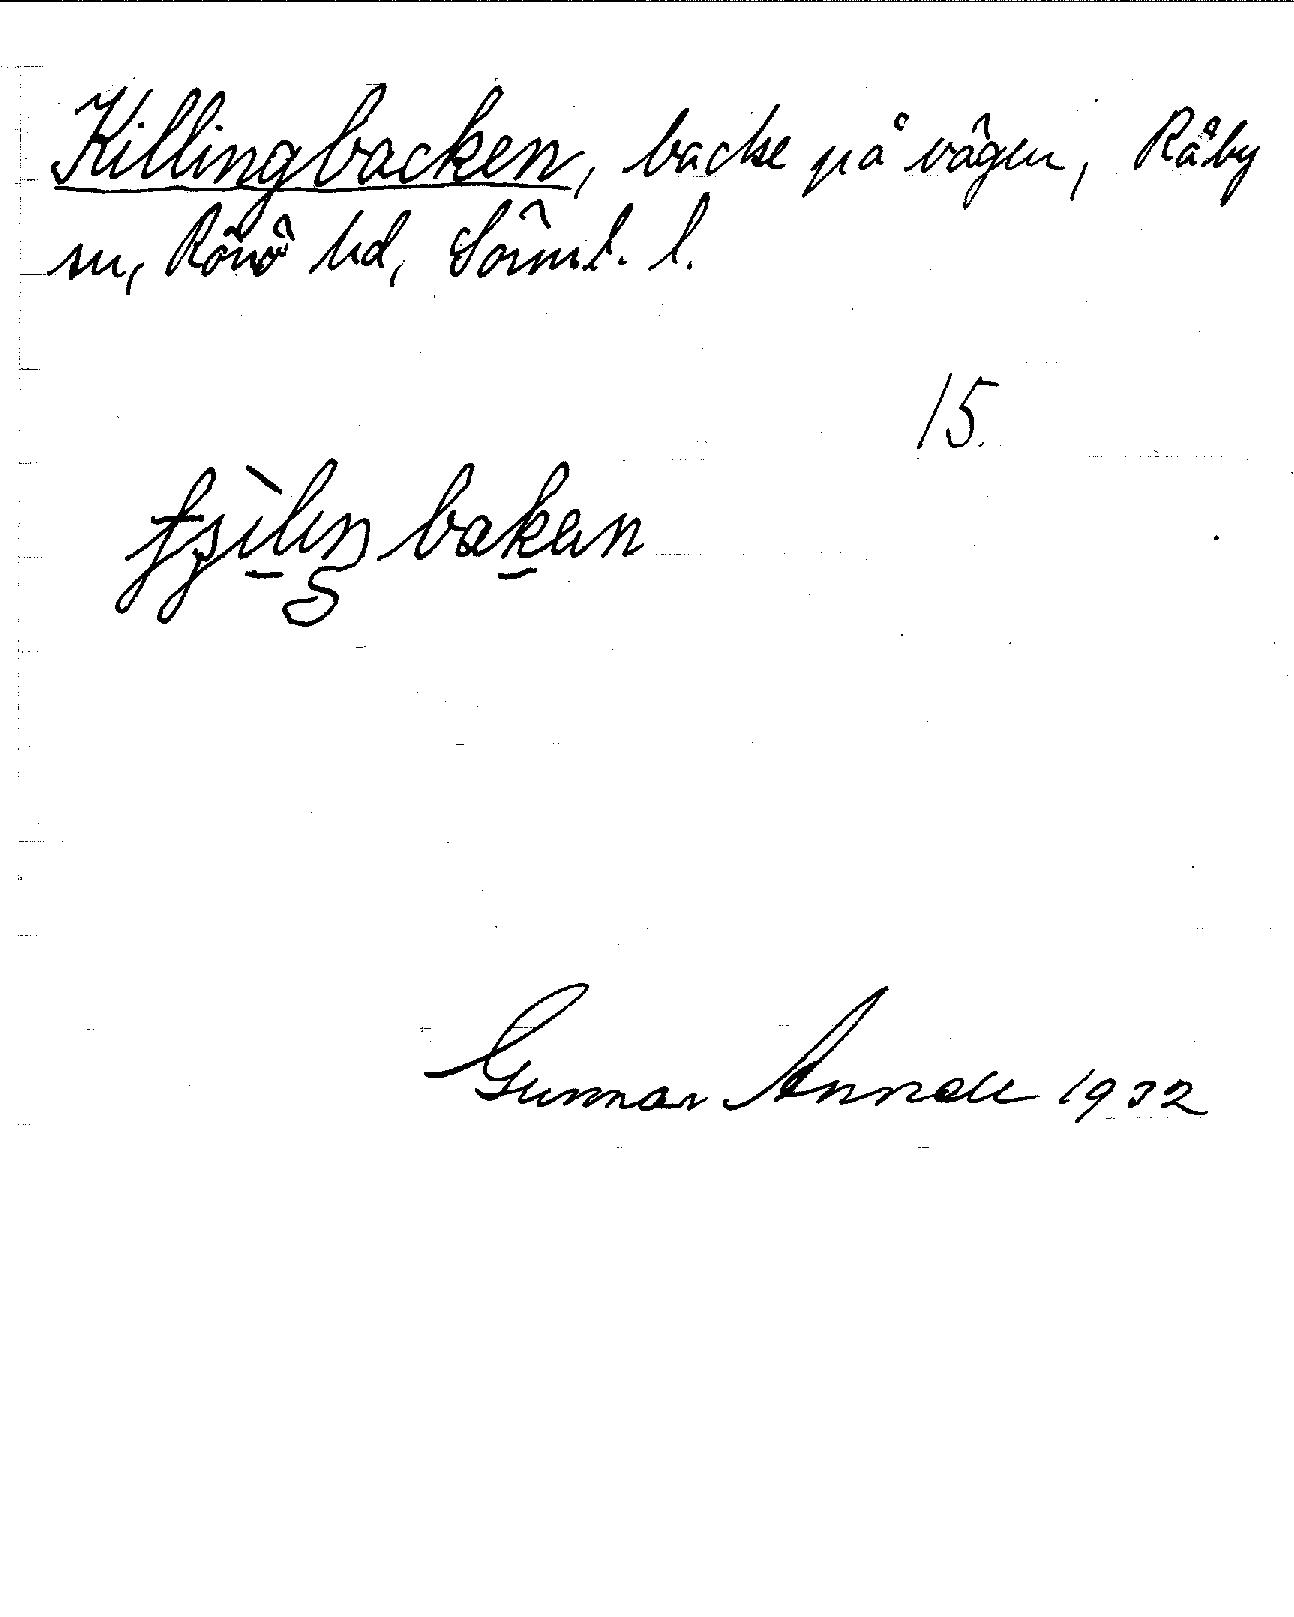 Killingbacken, backe på vägen, Råby
sn, Rönö hd, Sörml. l.
15.
Gunnar Annell 1932